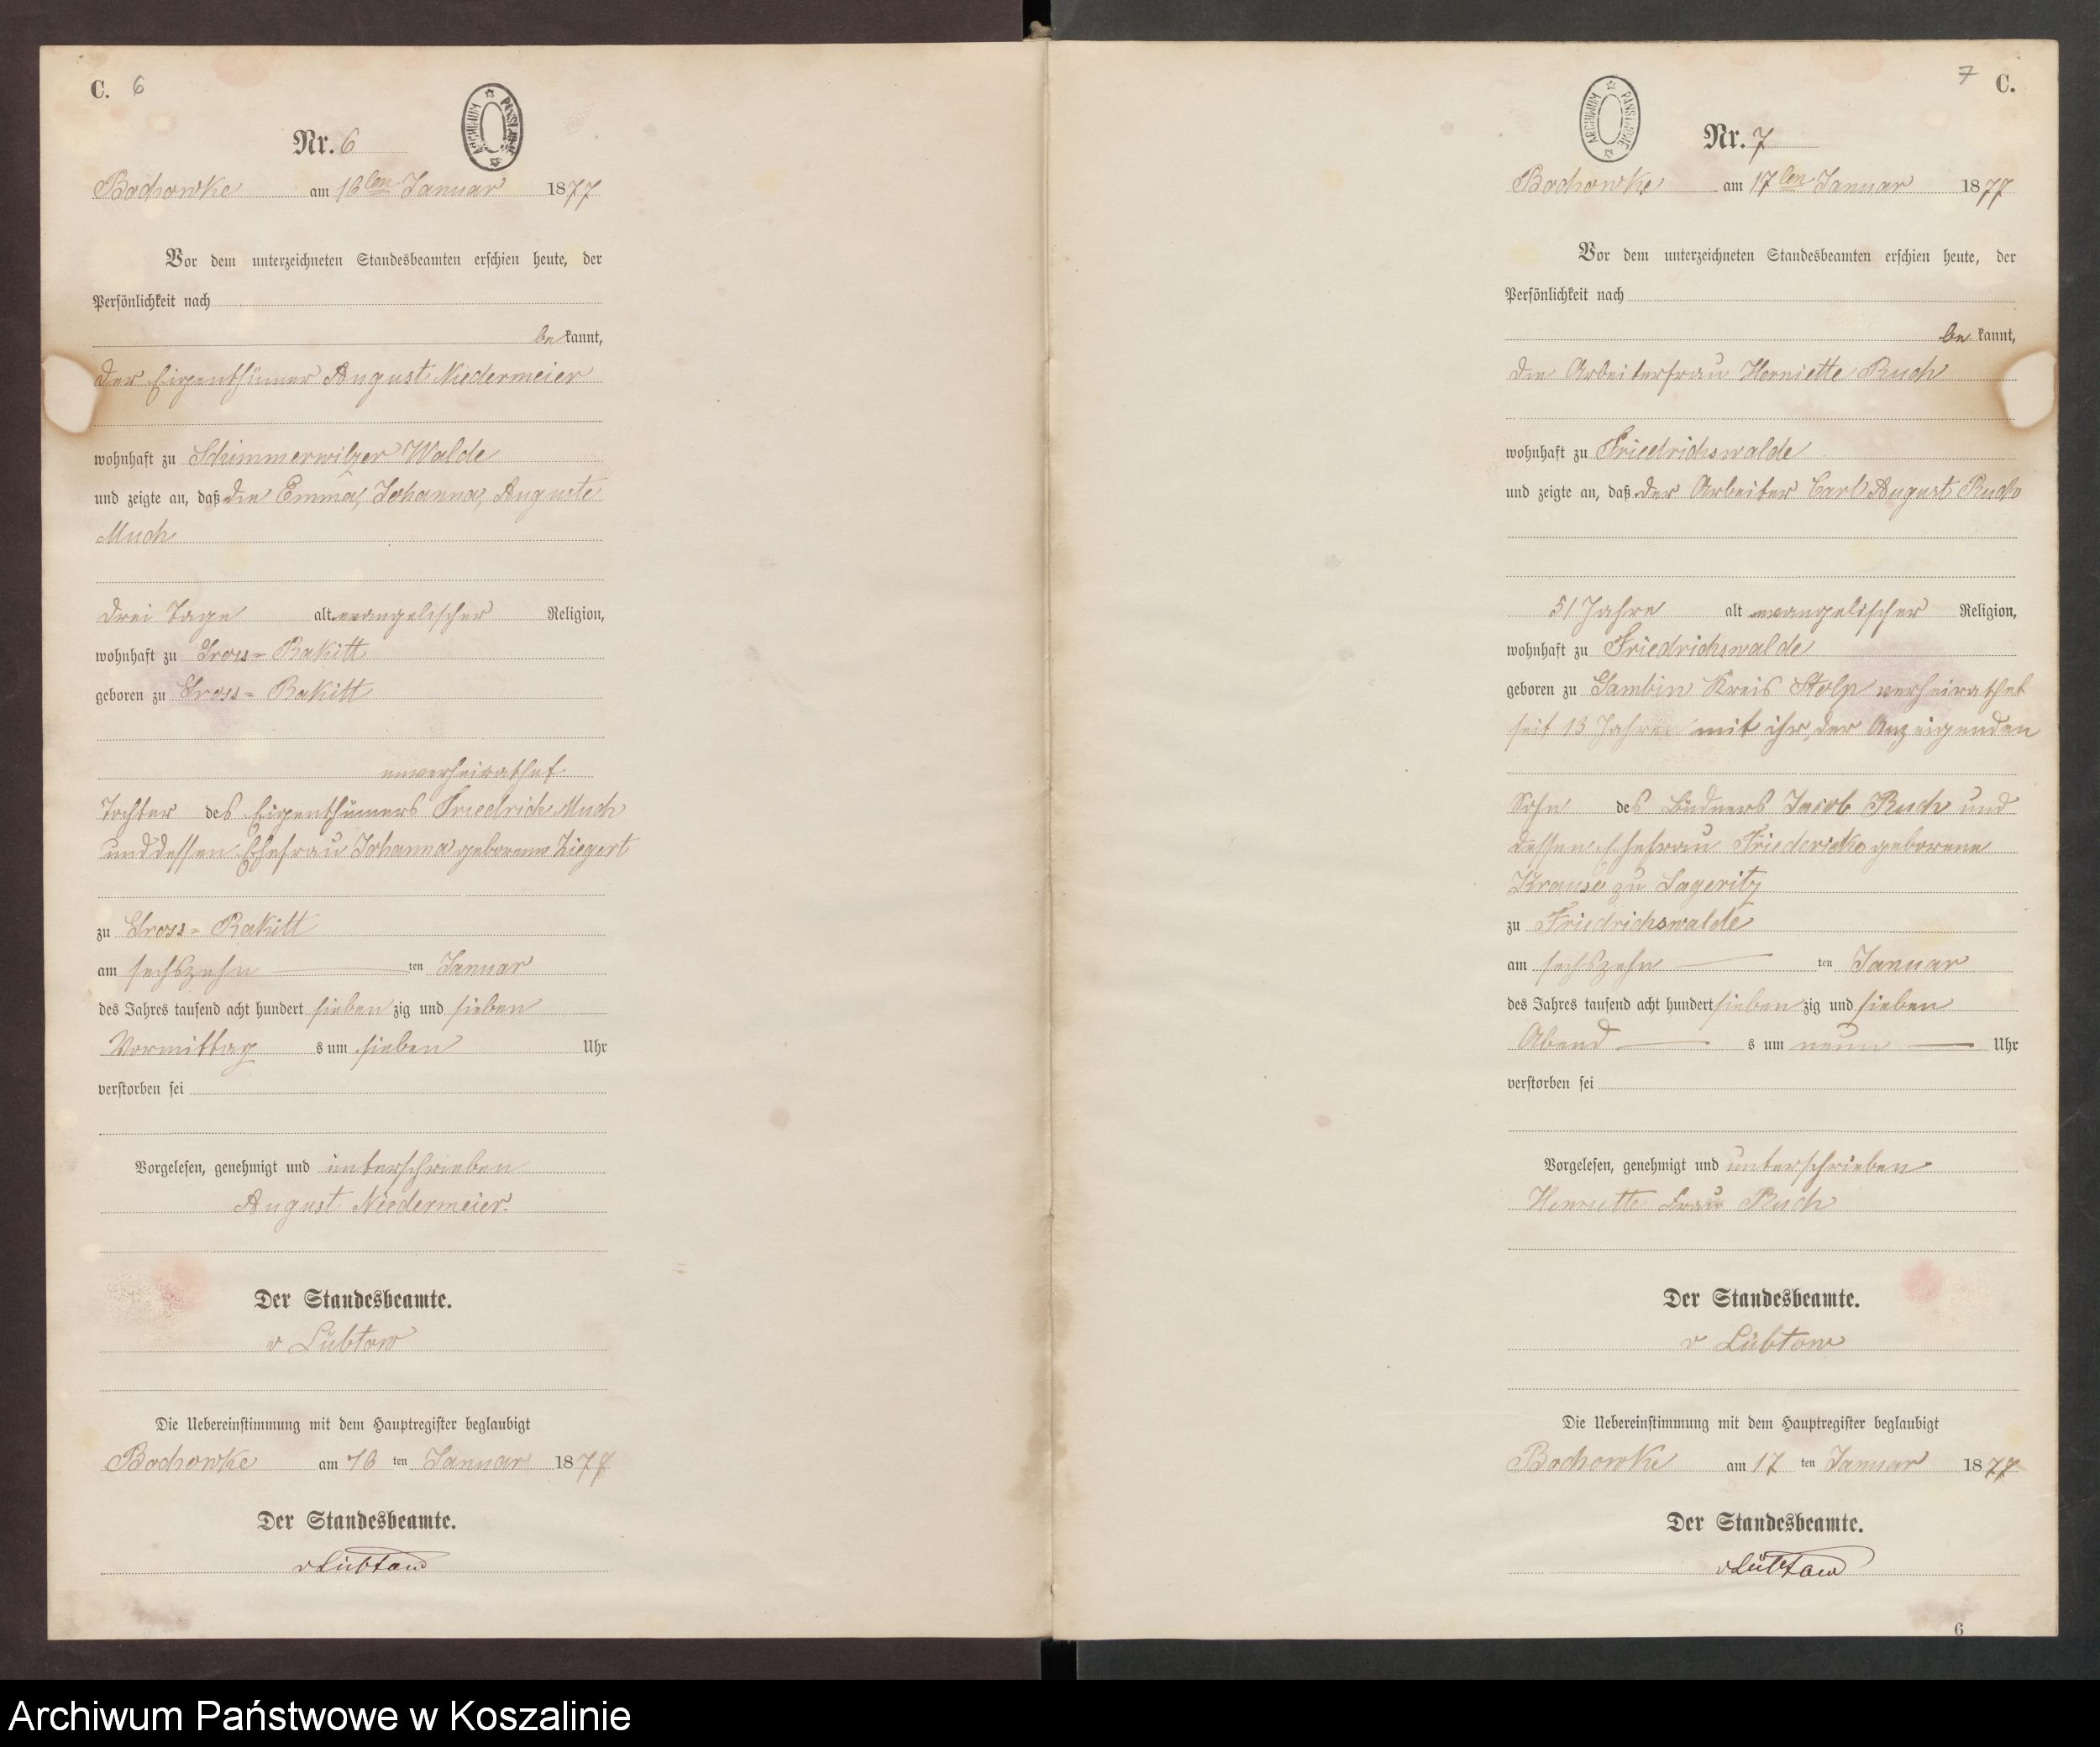 C. 6
ARCHIWUM PAŃSTWOWE
Nr. 6
Bochowke am 16ten Januar 1877
Vor dem unterzeichneten Standesbeamten erschien heute, der
Persönlichkeit nach
be kannt,
der Eigenthümer August Niedermeier
wohnhaft zu Schimmerwitzer Walde
und zeigte an, daß die Emma, Johanna, Auguste
Much
drei Tage alt evangelischer Religion,
wohnhaft zu Gross=Rakitt
geboren zu Gross=Rakitt
unverheirathet
Tochter des Eigenthümers Friedrich Much
und dessen Ehefrau Johanna geborene Ziegert
zu Gross=Rakitt
am sechszehn ten Januar
des Jahres tausend acht hundert sieben zig und sieben
Vormittag s um sieben Uhr
verstorben sei
Vorgelesen, genehmigt und unterschrieben
August Niedermeier.
Der Standesbeamte.
v Lübtow
Die Uebereinstimmung mit dem Hauptregister beglaubigt
Bochowke am 16 ten Januar 1877
Der Standesbeamte.
vLübtow
7 C.
ARCHIWUM PAŃSTWOWE
Nr. 7
Bochowke am 17ten Januar 1877
Vor dem unterzeichneten Standesbeamten erschien heute, der
Persönlichkeit nach
be kannt,
die Arbeiterfrau Henriette Ruch
wohnhaft zu Friedrichswalde
und zeigte an, daß der Arbeiter Carl August Ruch
51 Jahre alt evangelischer Religion,
wohnhaft zu Friedrichswalde
geboren zu Gambin Kreis Stolp verheirathet
seit 13 Jahren mit ihr, der Anzeigenden
Sohn des Büdners Jacob Ruch und
dessen Ehefrau Friedericke geborene
Krause zu Lageritz
zu Friedrichswalde
am sechszehn ten Januar
des Jahres tausend acht hundert sieben zig und sieben
Abend s um neun Uhr
verstorben sei
Vorgelesen, genehmigt und unterschrieben
Henriette Frau Ruch
Der Standesbeamte.
v Lübtow
Die Uebereinstimmung mit dem Hauptregister beglaubigt
Bochowke am 17 ten Januar 1877
Der Standesbeamte.
vLübtow
6
Archiwum Państwowe w Koszalinie